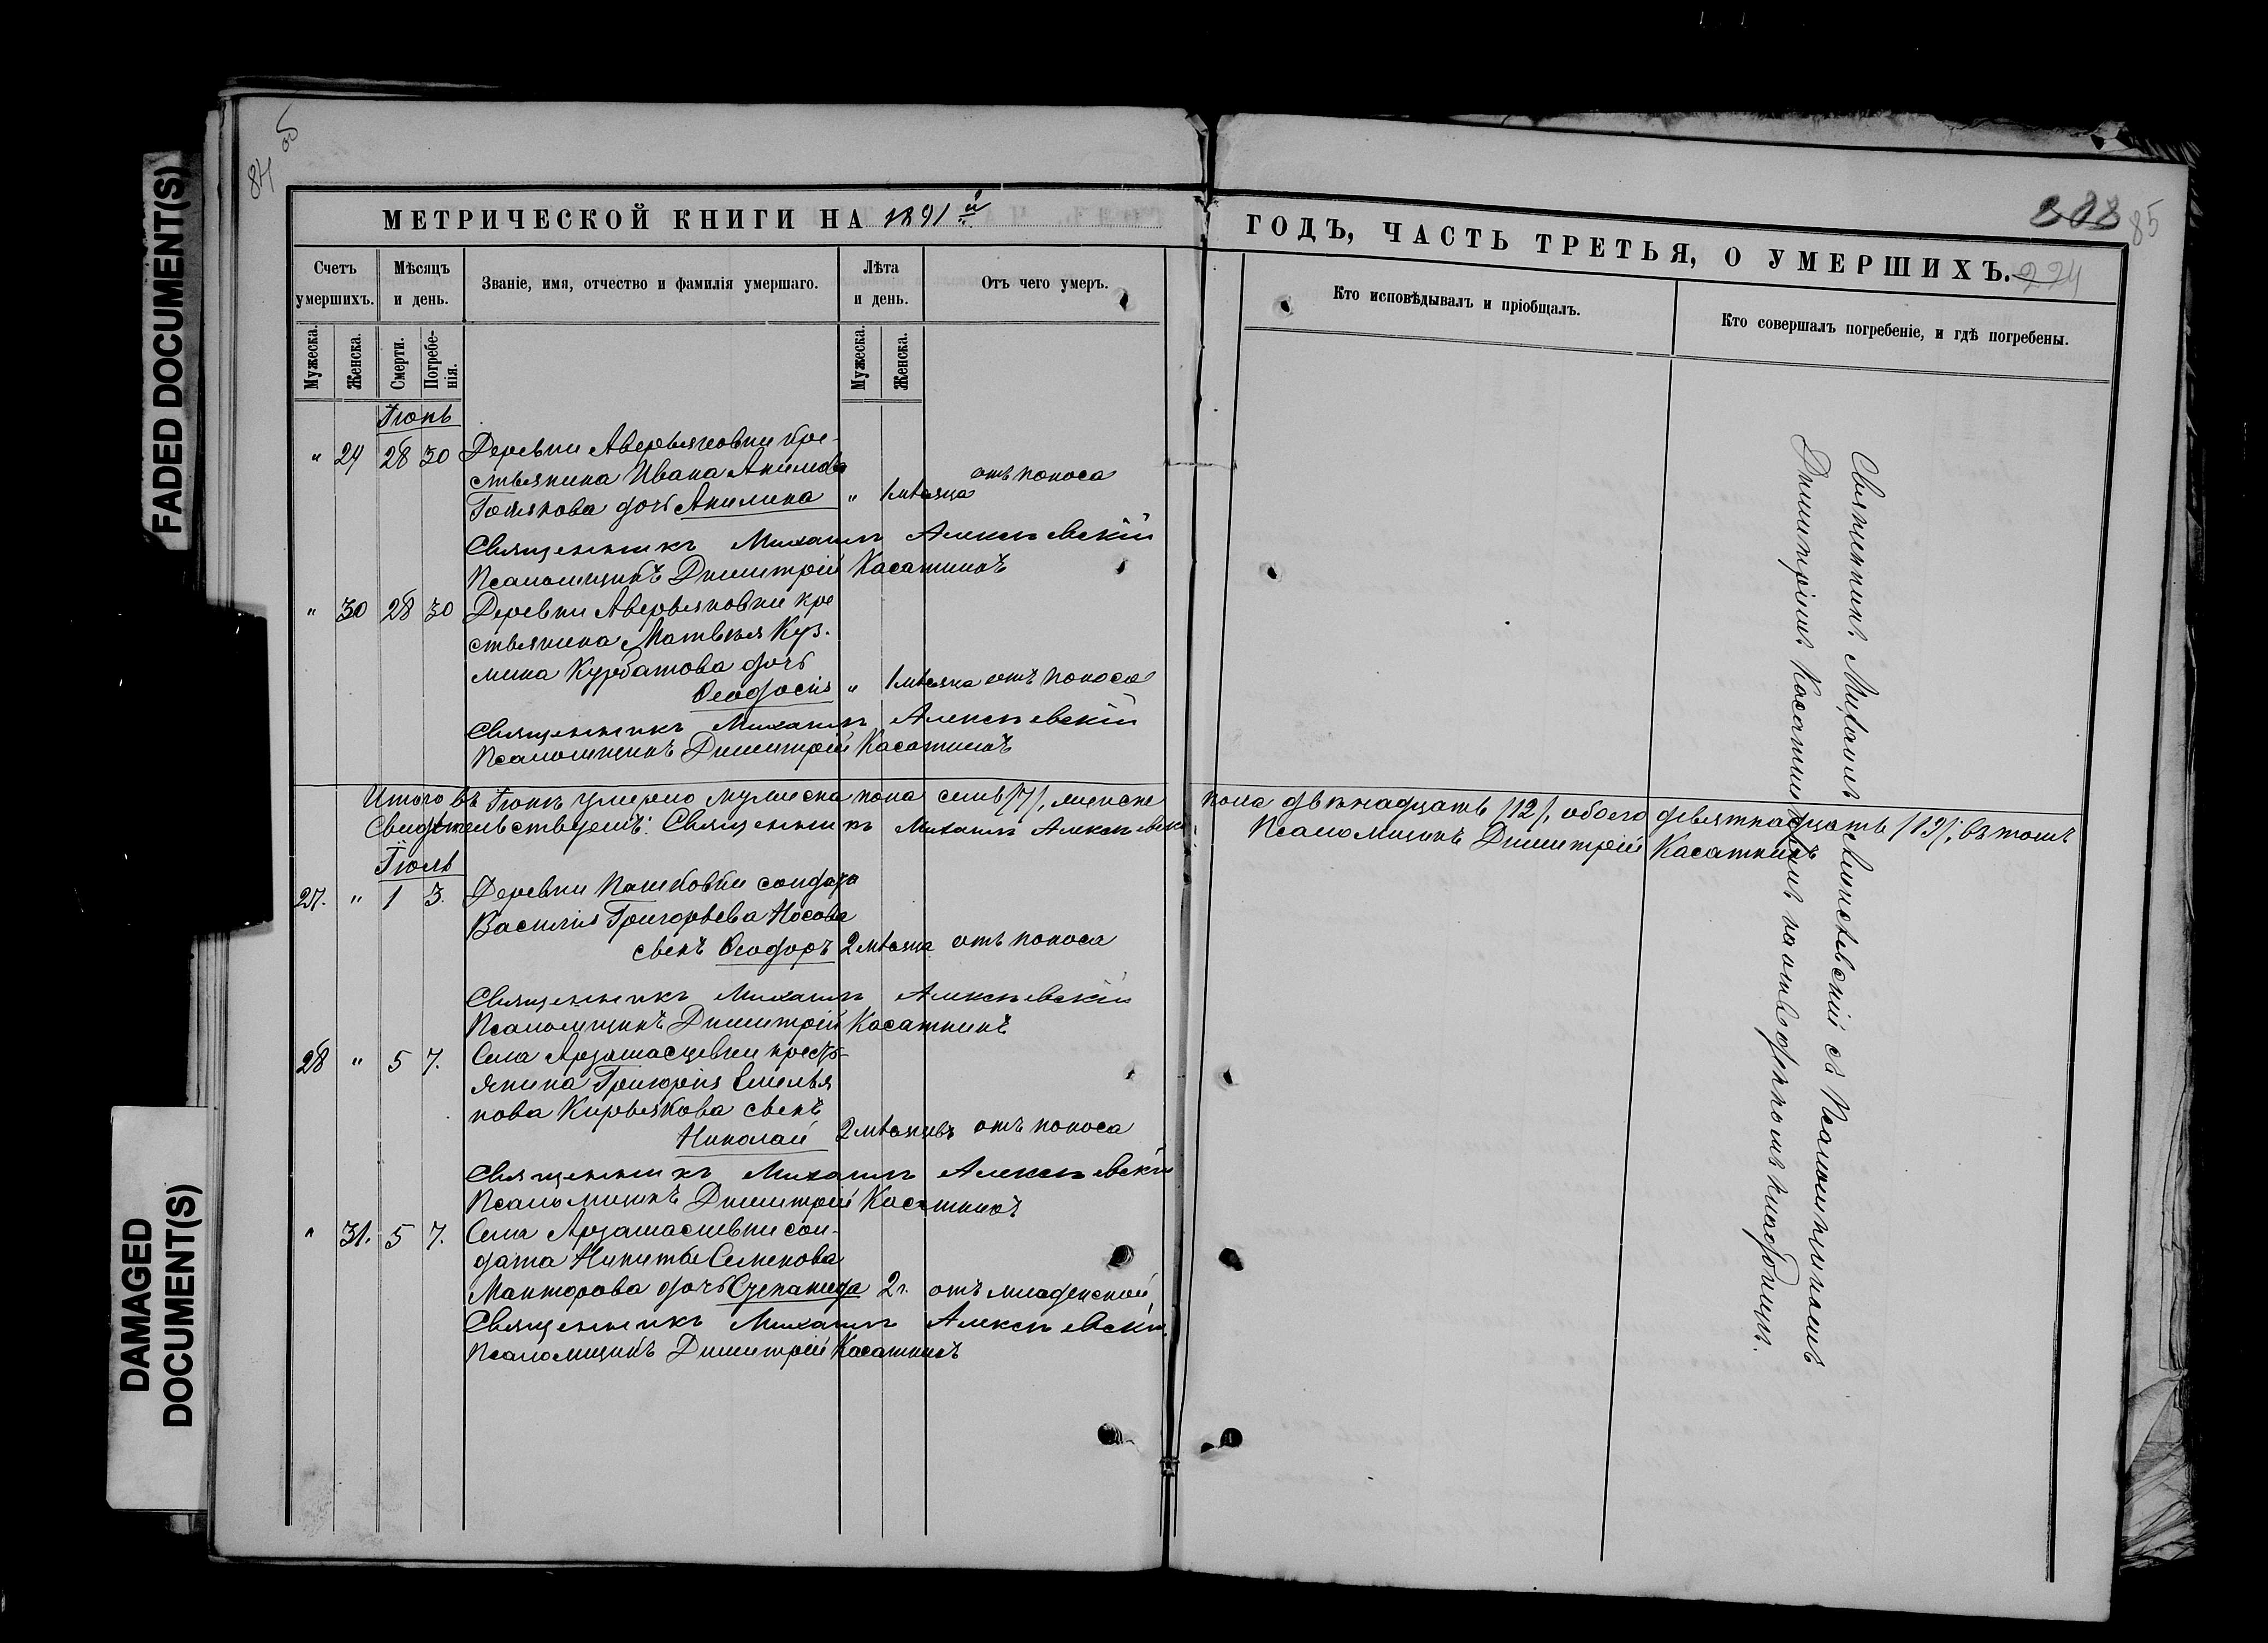 FADED DOCUMENT(S)
DAMAGED
DOCUMENT(S)
84 об
МЕТРИЧЕСКОЙ КНИГИ НА 1891й
Счетъ умершихъ.
Мѣсяцъ и день.
Званіе, имя, отчество и фамилія умершаго.
Лѣта и день.
Отъ чего умеръ.
Мужеска.
Женска.
Смерти.
Погребенія.
Мужеска.
Женска.
Іюнь
" 29 28 30 Деревни Аверьяновки кре-
стьянина Ивана Акимова
дочь Акилина " 1 мѣсяца отъ поноса
Священникъ Михаилъ Алексѣевскій
Псаломщикъ Димитрій Касаткинъ
" 30 28 30 Деревни Аверьяновки кре
стьянина Матвѣя Куз-
мина Курбатова дочь
Ѳеодосія " 1 мѣсяца отъ поноса
Священникъ Михаилъ Алексѣевскій
Псаломщикъ Димитрій Касаткинъ
Итого въ Іюнѣ умерло мужеска пола семь /7/, женска
Свидѣтельствуемъ: Священникъ Михаилъ Алексѣевскій
Іюль
27. " 1 3. Деревни Пашковки солдата
Василія Григорьева Носова
сынъ Ѳеодоръ 2 мѣсяца отъ поноса
Священникъ Михаилъ Алексѣевскій
Псаломщикъ Димитрій Касаткинъ
28 " 5 7. Села крестья-
янина Григорія Емелья
нова Кирьякова сынъ
Николай 2 мѣсяцевъ отъ поноса
Священникъ Михаилъ Алексѣевскій
Псаломщикъ Димитрій Касаткинъ
" 31. 5 7. Села сол-
дата Никиты Семенова
дочь Степанида 2 г. отъ младенской
Священникъ Михаилъ Алексѣевскій
Псаломщикъ Димитрій Касаткинъ
208 85
ГОДЪ, ЧАСТЬ ТРЕТЬЯ, О УМЕРШИХЪ.
224
Кто исповѣдывалъ и пріобщалъ.
Кто совершалъ погребеніе, и гдѣ погребены.
пола двѣнадцать /12/, обоего девятнадцать /19/; въ томъ
Псаломщикъ Димитрій Касаткинъ
Священникъ Михаилъ Алексѣевскій съ Псаломщикомъ
Димитріемъ Касаткинымъ на отведенномъ кладбищѣ.